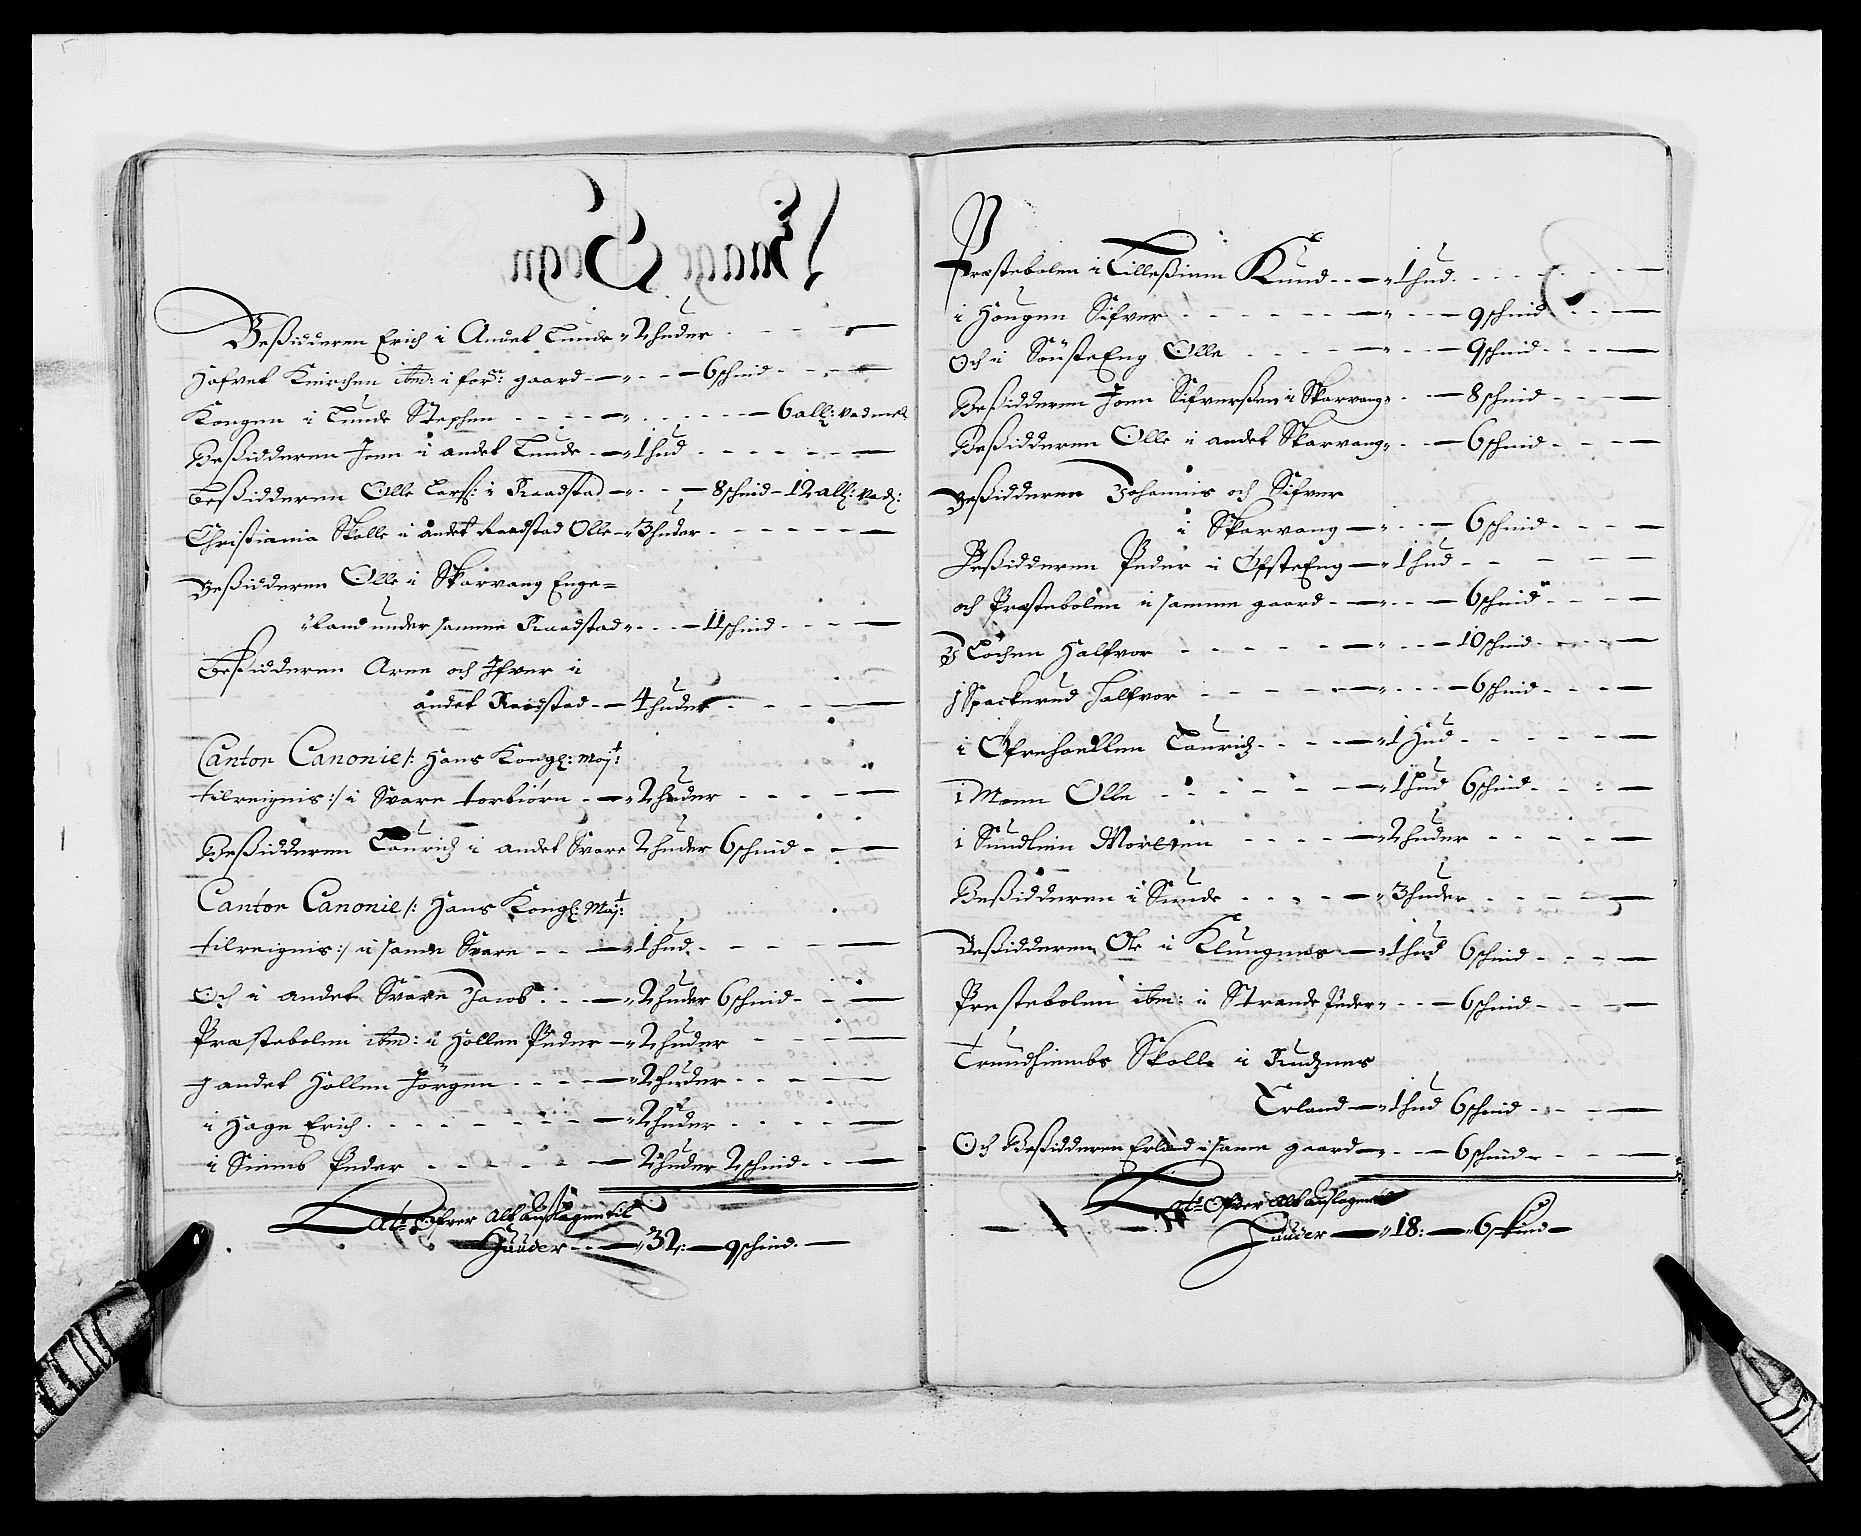 Beßidderen Erich i Andet Sunde 2 huder
Hafvet Kirchen ibm: i forⁿ: gaard 6 schind
Kongen i Sunde Stephen 6 all: vadmel
Beßidderen Joen i andet Sunde 1 hud
Beßidderen Olle Larß: i Raadstad 8 schind 12 all: vad:
Christiania Skolle i andet Raadstad Olle 3 huder
Beßidderen Olle i Skarvang Enge=
land under samme Raadstad 11 schind
Beßidderen Arne och Ifver i
andet Raadstad 4 huder
Cantor Canonie /: Hans Kongl: Maj:
tilreignis :/ i Svare torbiørn 2 huder
Beßidderen Lauridz i andet Svare 2 huder 6 schind
Cantor Canonie /: Hans Kongl: Maj:
tilreignis :/ i samme Svare 1 hud
Och i andet Svare Jacob 2 huder 6 schind
Præstebolen ibm: i Hollen Peder 2 huder
J andet Hollen Jörgen 2 huder
i Hage Erich 2 huder
i Siemb Peder 2 huder 2 schind
Lats Ofver alt auslagen til
Huuder 32: 9 schind
Præstebolen i Lilleßiem Knud 1 hud
i Hougen Sifver 9 schind
Och i SöusteEng Olle 9 schind
Beßidderen Joen Sifverßen i Skarvang 8 schind
Beßidderen Olle i andet Skarvang 6 schind
Beßidderen Johannis och Sifver
i Skarvang 6 schind
Beßidderen Peder i ØfsteEng 1 hud
och Præstebolen i samme gaard 6 schind
J Lochen Halfvor 10 schind
J Spackerud Halfvor 6 schind
i Øfrehoellen Lauridz 1 Hud
i Moen Olle 1 hud 6 schind
i Sundlien Morten 2 huder
Beßidderen i Sunde 3 huder
Beßidderen Ole i Klungnes 1 hud 6 schind
Prestebolen ibm: i Strande Peder 6 schind
Trundhiembs Skolle i Rudznes
Erland 1 hud 6 schind
Och Beßidderen Erland i samme gaard 6 schind
Lats Ofver alt auslagen til
Huuder 18: 6 skind